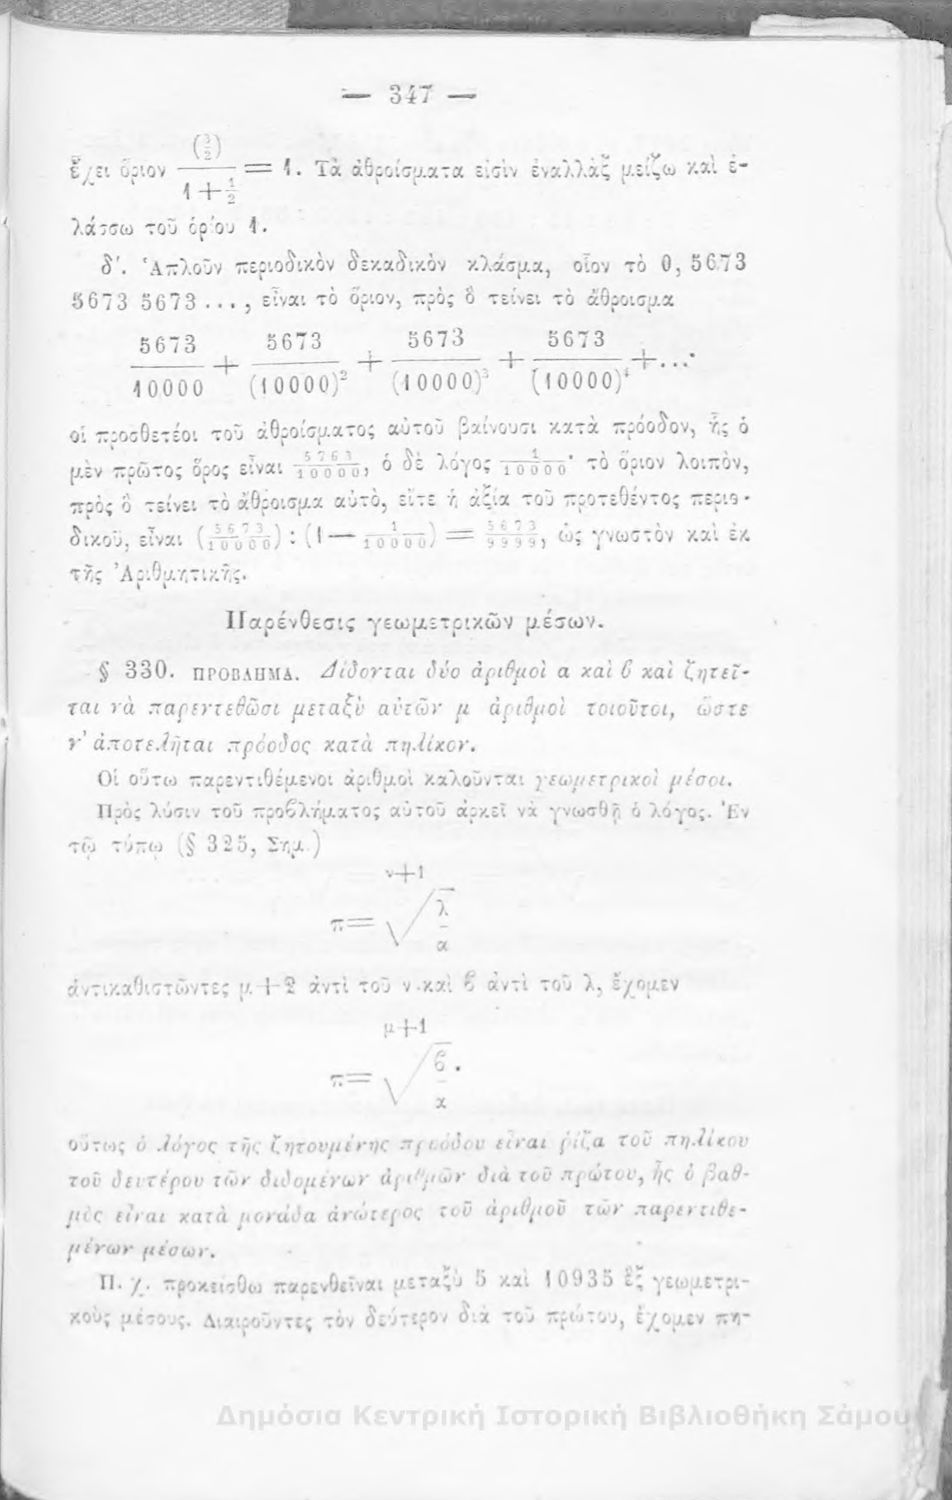 — 347 —
ἔχει ὅριον (3/2) / 1+1/2 = 1. Τὰ ἀθροίσματα εἰσὶν ἐναλλὰξ μείζω καὶ ἐ-
λάσσω τοῦ ὁρίου 1.
δ΄. Ἁπλοῦν περιοδικὸν δεκαδικὸν κλάσμα, οἷον τὸ 0, 5673
5673 5673 ..., εἶναι τὸ ὅριον, πρὸς ὃ τείνει τὸ ἄθροισμα
5673/10000 + 5673/(10000)² + 5673/(10000)³ + 5673/(10000)⁴ +...·
οἱ προσθετέοι τοῦ ἀθροίσματος αὐτοῦ βαίνουσι κατὰ πρόοδον, ἧς ὁ
μὲν πρῶτος ὅρος εἶναι 5763/10000, ὁ δὲ λόγος 1/10000· τὸ ὅριον λοιπὸν,
πρὸς ὃ τείνει τὸ ἄθροισμα αὐτὸ, εἴτε ἡ ἀξία τοῦ προτεθέντος περιο-
δικοῦ, εἶναι (5673/10000) : (1 — 1/10000) = 5673/9999, ὡς γνωστὸν καὶ ἐκ
τῆς Ἀριθμητικῆς.
Παρένθεσις γεωμετρικῶν μέσων.
§ 330. ΠΡΟΒΛΗΜΑ. Δίδονται δύο ἀριθμοὶ α καὶ β καὶ ζητεῖ-
ται νὰ παρεντεθῶσι μεταξὺ αὐτῶν μ ἀριθμοὶ τοιοῦτοι, ὥστε
ν' ἀποτελῆται πρόοδος κατὰ πηλίκον.
Οἱ οὕτω παρεντιθέμενοι ἀριθμοὶ καλοῦνται γεωμετρικοὶ μέσοι.
Πρὸς λύσιν τοῦ προβλήματος αὐτοῦ ἀρκεῖ νὰ γνωσθῇ ὁ λόγος. Ἐν
τῷ τύπῳ (§ 325, Σημ.)
ν+1
π= √ λ/α
ἀντικαθιστῶντες μ+2 ἀντὶ τοῦ ν καὶ β ἀντὶ τοῦ λ, ἔχομεν
μ+1
π= √ β/α .
οὕτως ὁ λόγος τῆς ζητουμένης προόδου εἶναι ῥίζα τοῦ πηλίκου
τοῦ δευτέρου τῶν διδομένων ἀριθμῶν διὰ τοῦ πρώτου, ἧς ὁ βαθ-
μὸς εἶναι κατὰ μονάδα ἀνώτερος τοῦ ἀριθμοῦ τῶν παρεντιθε-
μένων μέσων.
Π. χ. προκείσθω παρενθεῖναι μεταξὺ 5 καὶ 10935 ἓξ γεωμετρι-
κοὺς μέσους. Διαιροῦντες τὸν δεύτερον διὰ τοῦ πρώτου, ἔχομεν πη-
Δημόσια Κεντρική Ιστορική Βιβλιοθήκη Σάμου